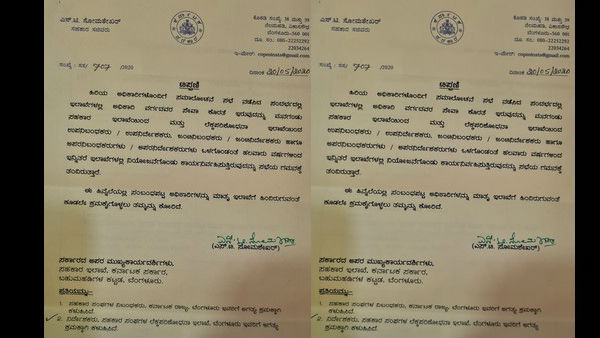 ಎಸ್.ಟಿ. ಸೋಮಶೇಖರ್
ಸಹಕಾರ ಸಚಿವರು
ಕೊಠಡಿ ಸಂಖ್ಯೆ 38 ಮತ್ತು 39
ನೆಲಮಹಡಿ, ವಿಕಾಸಸೌಧ
ಬೆಂಗಳೂರು-560 001
ದೂ. ಸಂ.: 080-22252292
22034264
ಇ-ಮೇಲ್:
ಸಂಖ್ಯೆ : ಸಸ/ 707 /2020
ದಿನಾಂಕ 20/05/2020
ಟಿಪ್ಪಣಿ
ಹಿರಿಯ ಅಧಿಕಾರಿಗಳೊಂದಿಗೆ ಸಮಾಲೋಚನೆ ಸಭೆ ನಡೆಸಿದ ಸಂದರ್ಭದಲ್ಲಿ
ಇಲಾಖೆಗಳಲ್ಲಿ ಅಧಿಕಾರಿ ವರ್ಗದವರ ಸೇವಾ ಕೊರತೆ ಇರುವುದನ್ನು ಮನಗಂಡು
ಸಹಕಾರ ಇಲಾಖೆಯಿಂದ ಮತ್ತು ಲೆಕ್ಕಪರಿಶೋಧನಾ ಇಲಾಖೆಯಿಂದ
ಉಪನಿಬಂಧಕರು / ಉಪನಿರ್ದೇಶಕರು, ಜಂಟಿನಿಬಂಧಕರು / ಜಂಟಿನಿರ್ದೇಶಕರು ಹಾಗೂ
ಅಪರನಿಬಂಧಕರುಗಳು / ಅಪರನಿರ್ದೇಶಕರುಗಳು ಒಳಗೊಂಡಂತೆ ಹಲವಾರು ವರ್ಷಗಳಿಂದ
ಇನ್ನಿತರೆ ಇಲಾಖೆಗಳಲ್ಲಿ ನಿಯೋಜನೆಗೊಂಡು ಕಾರ್ಯನಿರ್ವಹಿಸುತ್ತಿರುವುದನ್ನು ಸಭೆಯ ಗಮನಕ್ಕೆ
ತಂದಿರುತ್ತಾರೆ.
ಈ ಹಿನ್ನೆಲೆಯಲ್ಲಿ ಸಂಬಂಧಪಟ್ಟ ಅಧಿಕಾರಿಗಳನ್ನು ಮಾತೃ ಇಲಾಖೆಗೆ ಹಿಂದಿರುಗುವಂತೆ
ಕೂಡಲೇ ಕ್ರಮಕೈಗೊಳ್ಳಲು ತಮ್ಮನ್ನು ಕೋರಿದೆ.
(ಎಸ್.ಟಿ. ಸೋಮಶೇಖರ್)
ಸರ್ಕಾರದ ಅಪರ ಮುಖ್ಯಕಾರ್ಯದರ್ಶಿಗಳು,
ಸಹಕಾರ ಇಲಾಖೆ, ಕರ್ನಾಟಕ ಸರ್ಕಾರ,
ಬಹುಮಹಡಿಗಳ ಕಟ್ಟಡ, ಬೆಂಗಳೂರು.
ಪ್ರತಿಯನ್ನು:-
1. ಸಹಕಾರ ಸಂಘಗಳ ನಿಬಂಧಕರು, ಕರ್ನಾಟಕ ರಾಜ್ಯ, ಬೆಂಗಳೂರು ಇವರಿಗೆ ಅಗತ್ಯ ಕ್ರಮಕ್ಕಾಗಿ
ಕಳುಹಿಸಿದೆ.
2. ನಿರ್ದೇಶಕರು, ಸಹಕಾರ ಸಂಘಗಳ ಲೆಕ್ಕಪರಿಶೋಧನಾ ಇಲಾಖೆ, ಬೆಂಗಳೂರು ಇವರಿಗೆ ಅಗತ್ಯ
ಕ್ರಮಕ್ಕಾಗಿ ಕಳುಹಿಸಿದೆ.
ಎಸ್.ಟಿ. ಸೋಮಶೇಖರ್
ಸಹಕಾರ ಸಚಿವರು
ಕೊಠಡಿ ಸಂಖ್ಯೆ 38 ಮತ್ತು 39
ನೆಲಮಹಡಿ, ವಿಕಾಸಸೌಧ
ಬೆಂಗಳೂರು-560 001
ದೂ. ಸಂ.: 080-22252292
22034264
ಇ-ಮೇಲ್:
ಸಂಖ್ಯೆ : ಸಸ/ 707 /2020
ದಿನಾಂಕ 20/05/2020
ಟಿಪ್ಪಣಿ
ಹಿರಿಯ ಅಧಿಕಾರಿಗಳೊಂದಿಗೆ ಸಮಾಲೋಚನೆ ಸಭೆ ನಡೆಸಿದ ಸಂದರ್ಭದಲ್ಲಿ
ಇಲಾಖೆಗಳಲ್ಲಿ ಅಧಿಕಾರಿ ವರ್ಗದವರ ಸೇವಾ ಕೊರತೆ ಇರುವುದನ್ನು ಮನಗಂಡು
ಸಹಕಾರ ಇಲಾಖೆಯಿಂದ ಮತ್ತು ಲೆಕ್ಕಪರಿಶೋಧನಾ ಇಲಾಖೆಯಿಂದ
ಉಪನಿಬಂಧಕರು / ಉಪನಿರ್ದೇಶಕರು, ಜಂಟಿನಿಬಂಧಕರು / ಜಂಟಿನಿರ್ದೇಶಕರು ಹಾಗೂ
ಅಪರನಿಬಂಧಕರುಗಳು / ಅಪರನಿರ್ದೇಶಕರುಗಳು ಒಳಗೊಂಡಂತೆ ಹಲವಾರು ವರ್ಷಗಳಿಂದ
ಇನ್ನಿತರೆ ಇಲಾಖೆಗಳಲ್ಲಿ ನಿಯೋಜನೆಗೊಂಡು ಕಾರ್ಯನಿರ್ವಹಿಸುತ್ತಿರುವುದನ್ನು ಸಭೆಯ ಗಮನಕ್ಕೆ
ತಂದಿರುತ್ತಾರೆ.
ಈ ಹಿನ್ನೆಲೆಯಲ್ಲಿ ಸಂಬಂಧಪಟ್ಟ ಅಧಿಕಾರಿಗಳನ್ನು ಮಾತೃ ಇಲಾಖೆಗೆ ಹಿಂದಿರುಗುವಂತೆ
ಕೂಡಲೇ ಕ್ರಮಕೈಗೊಳ್ಳಲು ತಮ್ಮನ್ನು ಕೋರಿದೆ.
(ಎಸ್.ಟಿ. ಸೋಮಶೇಖರ್)
ಸರ್ಕಾರದ ಅಪರ ಮುಖ್ಯಕಾರ್ಯದರ್ಶಿಗಳು,
ಸಹಕಾರ ಇಲಾಖೆ, ಕರ್ನಾಟಕ ಸರ್ಕಾರ,
ಬಹುಮಹಡಿಗಳ ಕಟ್ಟಡ, ಬೆಂಗಳೂರು.
ಪ್ರತಿಯನ್ನು:-
1. ಸಹಕಾರ ಸಂಘಗಳ ನಿಬಂಧಕರು, ಕರ್ನಾಟಕ ರಾಜ್ಯ, ಬೆಂಗಳೂರು ಇವರಿಗೆ ಅಗತ್ಯ ಕ್ರಮಕ್ಕಾಗಿ
ಕಳುಹಿಸಿದೆ.
2. ನಿರ್ದೇಶಕರು, ಸಹಕಾರ ಸಂಘಗಳ ಲೆಕ್ಕಪರಿಶೋಧನಾ ಇಲಾಖೆ, ಬೆಂಗಳೂರು ಇವರಿಗೆ ಅಗತ್ಯ
ಕ್ರಮಕ್ಕಾಗಿ ಕಳುಹಿಸಿದೆ.